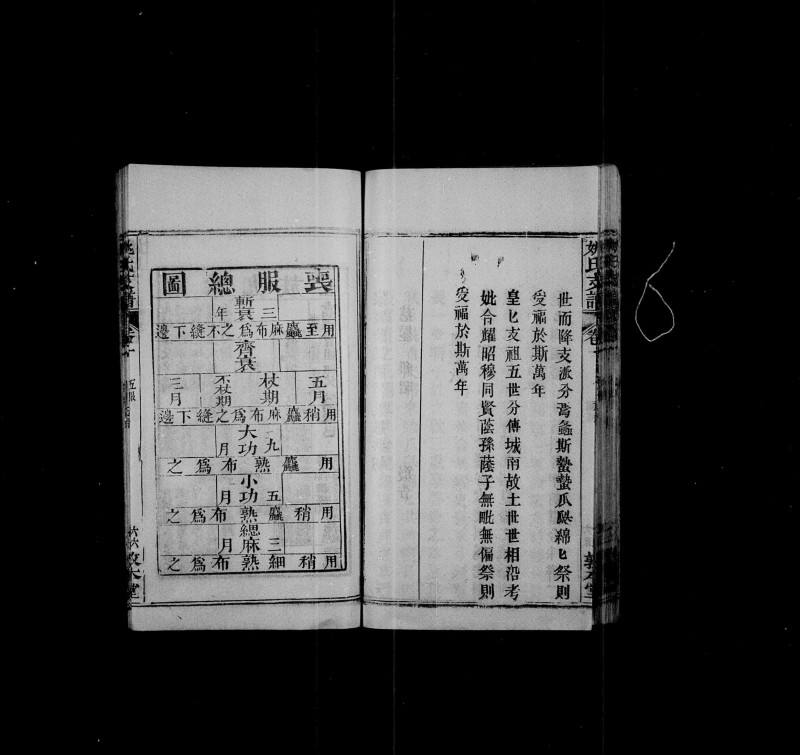 世而降支派分焉螽斯蟄蟄瓜瓞綿匕祭則
受福於斯萬年
皇匕支祖五世分傳城南故土世世相沿考
妣合耀昭穆同賢蔭孫蔭子無毗無偏祭則
受福於斯萬年
姚氏支譜
卷一
敦本堂
喪服總圖
斬衰
三年
用至麤麻布爲之不縫下邊
齊衰
五月
杖期
不杖期
三月
用稍麤麻布爲之縫下邊
大功
九月
用麤熟布爲之
小功
五月
用稍麤熟布爲之
緦麻
三月
用稍細熟布爲之
姚氏支譜
卷一
五服
六六
敦本堂